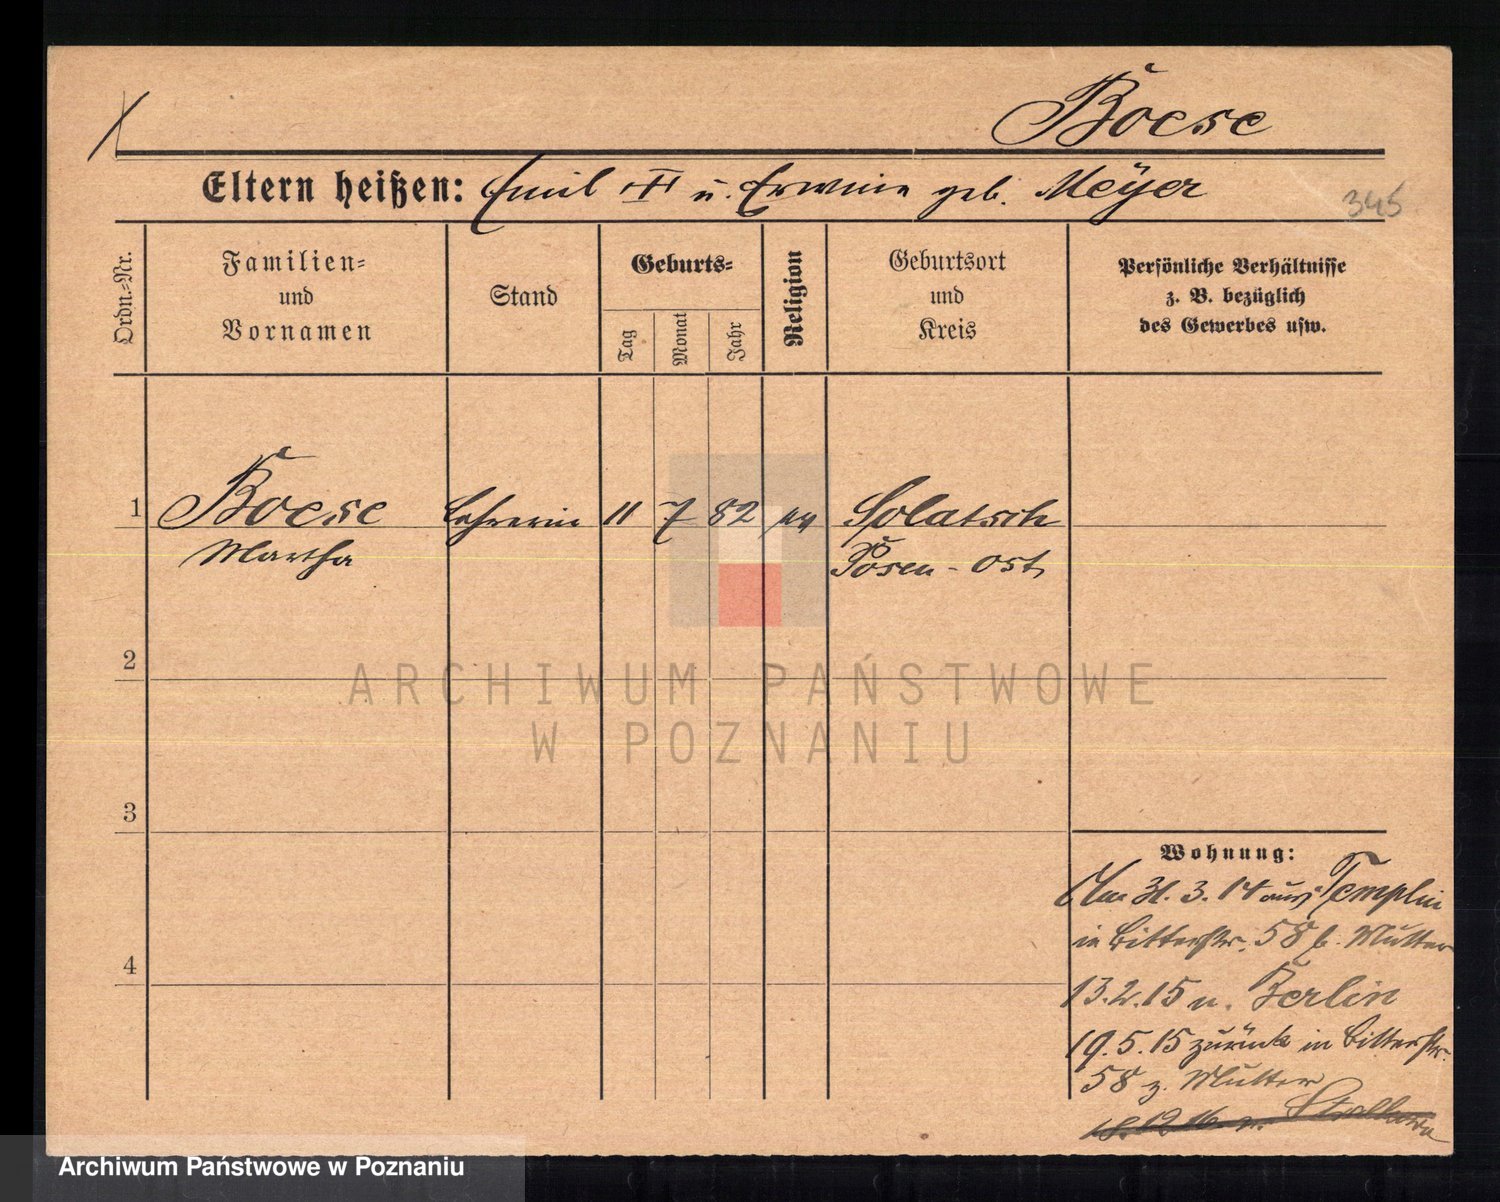 Boese
Eltern heißen: Emil u. Erwine geb. Meÿer
345
Ordn.=Nr.
Familien=
und
Vornamen
Stand
Geburts=
Tag
Monat
Jahr
Religion
Geburtsort
und
Kreis
Persönliche Verhältnisse
z. B. bezüglich
des Gewerbes usw.
1 Boese Lehrerin 11 7 82 Solatsch
Martha Posen - Ost
2
3
4
ARCHIWUM PAŃSTWOWE
W POZNANIU
Wohnung:
Am 31. 3. 14 aus Templin
in Bitterstr. 58 b. Mutter
13. 2. 15 n. Berlin
19. 5. 15 zurück in Bitterstr.
58 z. Mutter
18. 12 16 n.
Archiwum Państwowe w Poznaniu